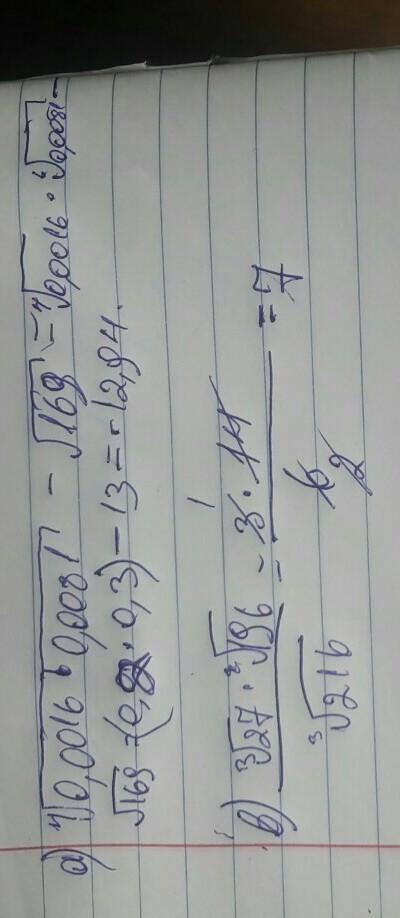 а) ⁴√0,0016 · 0,0081 - √169 = ⁴√0,0016 · ⁴√0,0081 -
√169 = (0,2 · 0,3) - 13 = -12,94.
в) (³√27 · ²√196) / ³√216 = (3 · 14) / 6 = 7
1
2